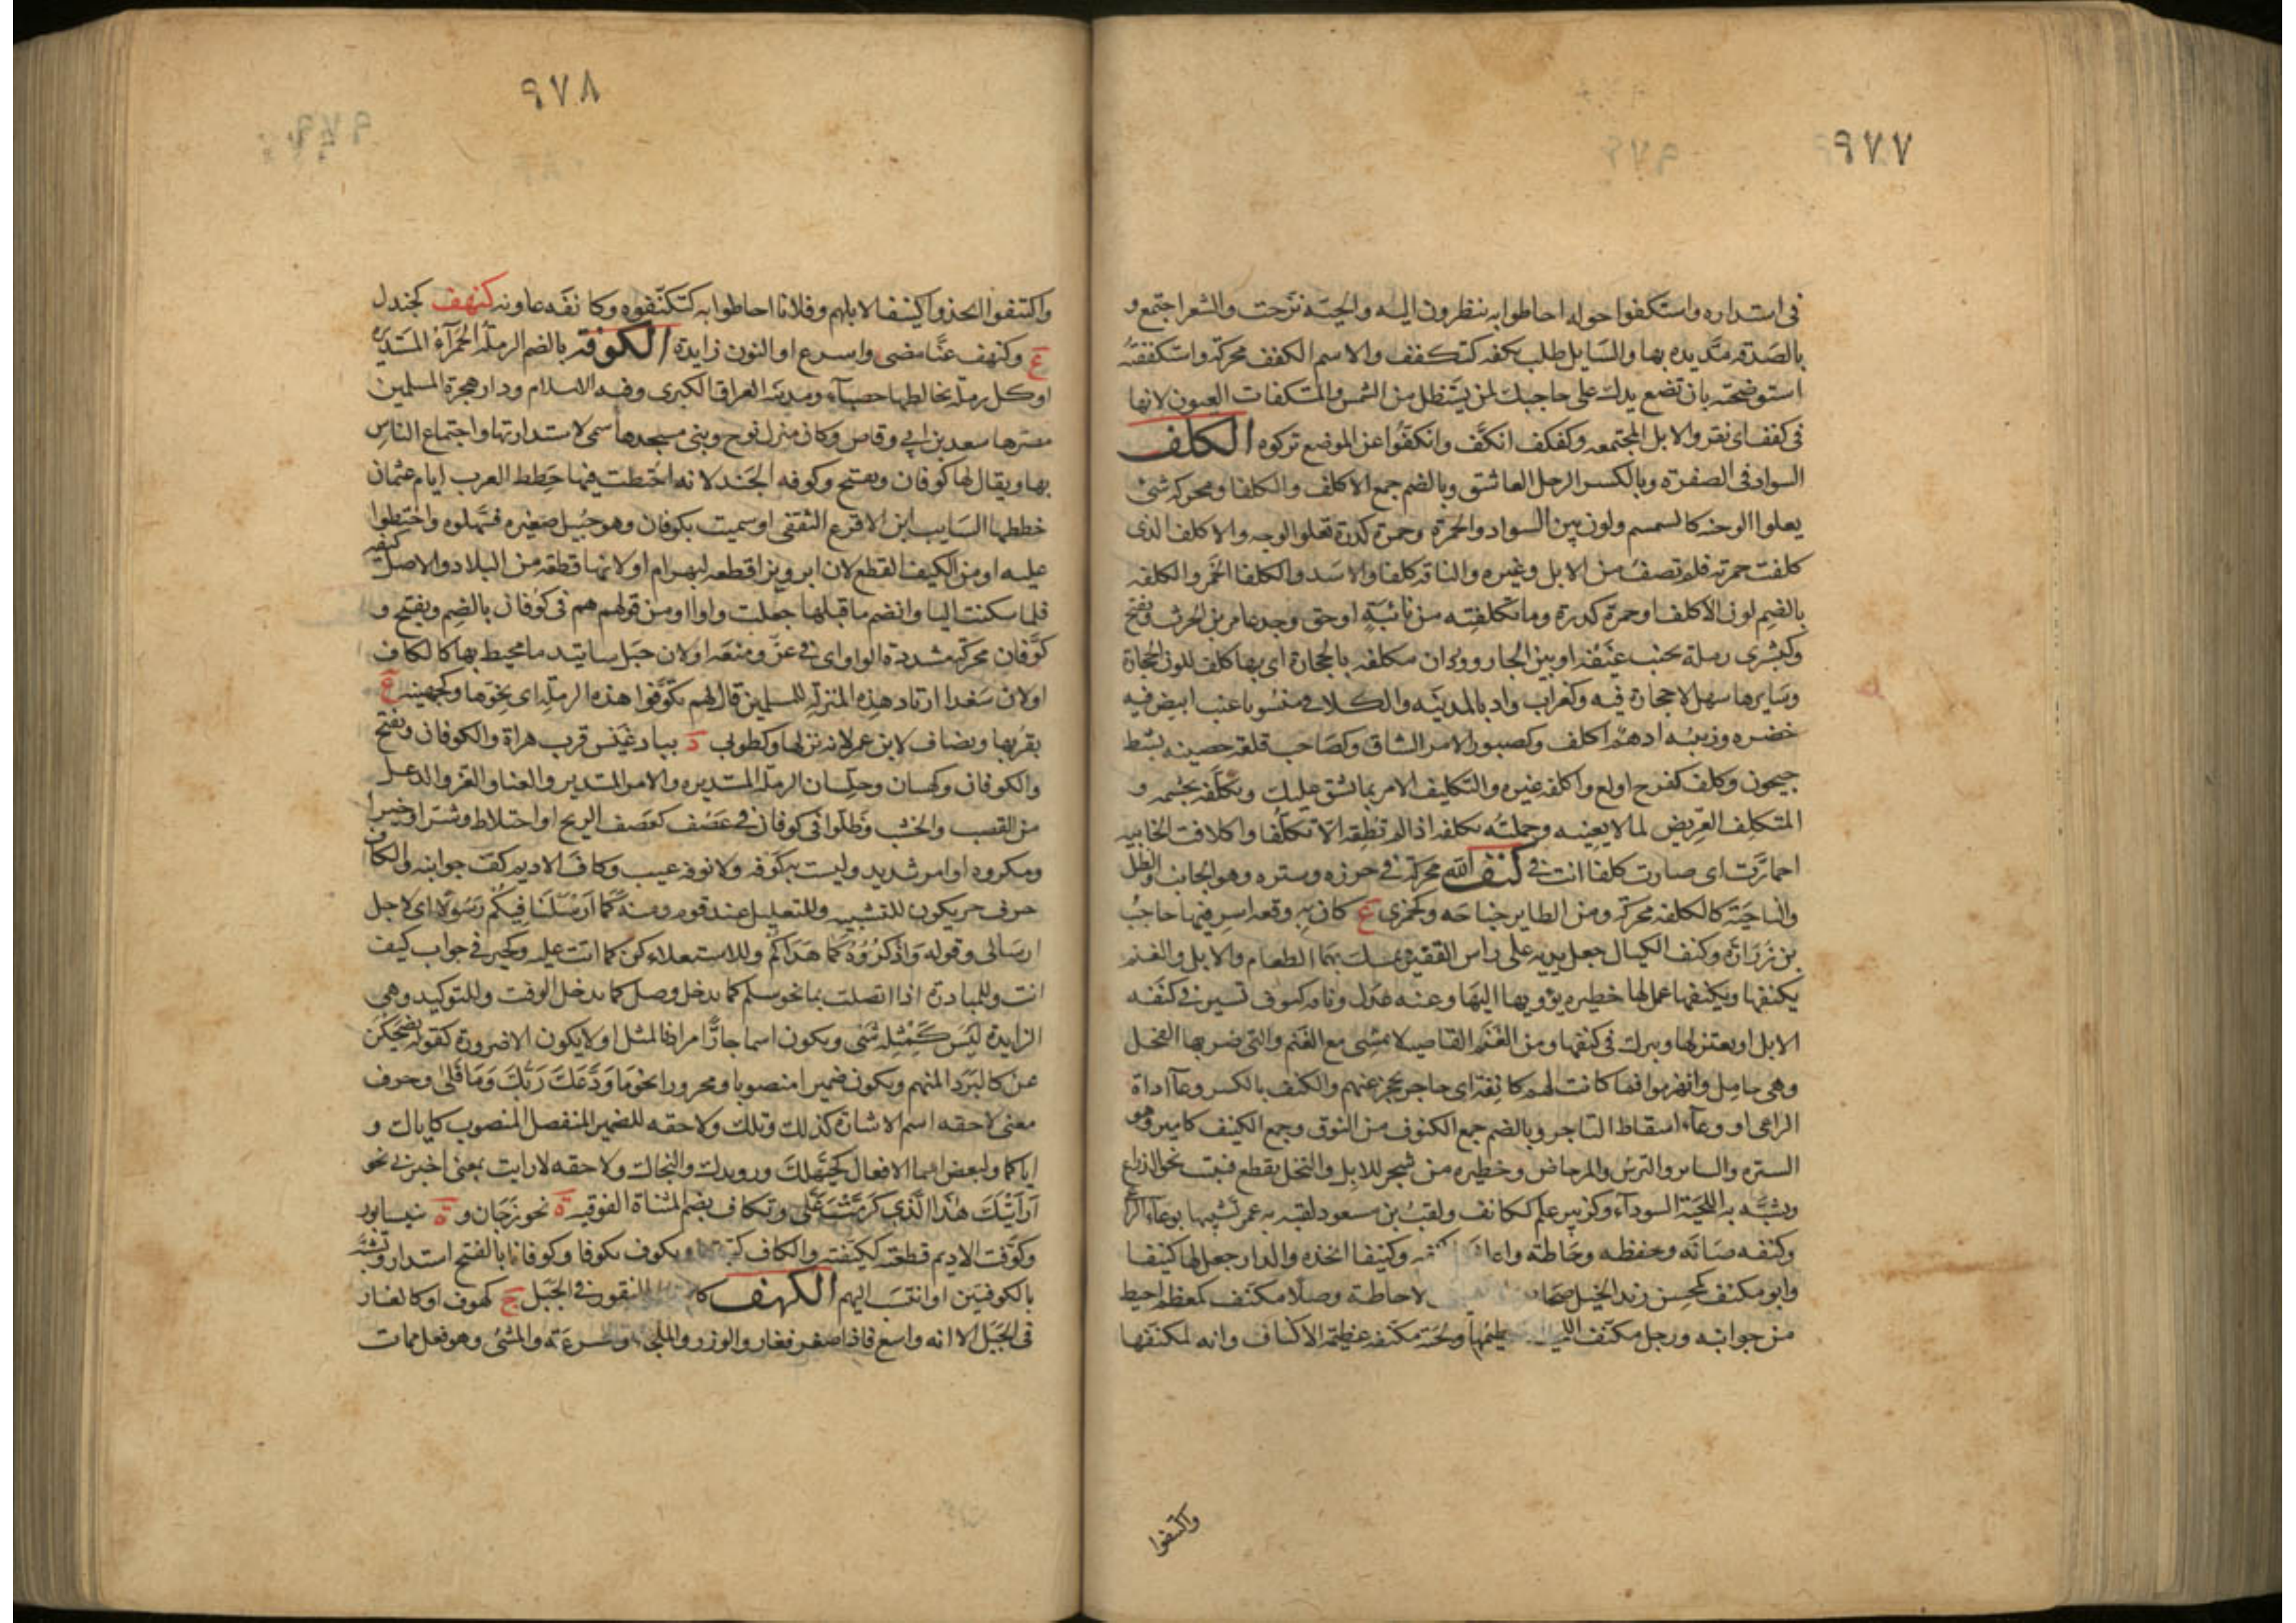 ٩٧٧
فى استداره واستكفوا حوله احاطوا به ينظرون اليه والحية ترحت والشعر اجتمع و
بالصدقة مد يده بها والسايل طلب بكفه كتكفف والاسم الكفف محركة واستكففته
استوضحته بان تضع يدك على حاجبك كمن يستظل من الشمس والمستكفات العيون لانها
فى كفف اى نقر والابل المجتمعه وكفكف انكف وانكفوا عن الموضع تركوه الكلف
السواد فى الصفرة وبالكسر الرجل العاشق وبالضم جمع الاكلف والكلفا ومحركه شئ
يعلوا الوجه كالسمسم ولون بين السواد والحمرة وحمرة كدرة تعلوا الوجه والاكلف الذى
كلفت حمرته فلم تصف من الابل وغيره والناقه كلفا والاسد والكلفا الخمر والكلفه
بالضم لون الاكلف او حمرة كدرة وما تكلفته من نائبة او حق وجد عامر بن الحرث ويفتح
وكبشرى رملة بجنب غيقه او بين الجار وودان مكلفه بالحجارة اى بها كلف للون الحجارة
وسايرها سهل لا حجارة فيه وكغراب واد بالمدينه والكلافى منسوبا عنب ابيض فيه
خضره وزبيبه ادهم اكلف وكصبور الامر الشاق وكصاحب قلعة حصينه بشط
جيحون وكلف كفرح اولع واكلفه غيره والتكليف الامر بما يشق عليك وتكلفه تجشمه و
المتكلف العريض لما لا يعنيه وحملته تكلفه اذا لم تطقه الا تكلفا واكلافت الخابيه
احمارت اى صارت كلفا انت فى كنف الله محركة فى حرزه وستره وهو الجانب والظل
والناحية كالكنفه محركه ومن الطاير جناحه وكجمزى ع كان به وقعه اسر فيها حاجب
بن زرارة وكنف الكيال جعل يديه على راس القفيز يمسك بهما الطعام والابل والغنم
يكنفها ويكنفها عمل لها حظيره يؤويها اليها وعنه عدل وناقه كنوف تسير فى كنفه
الابل او يعتزلها ويبرك فى كنفها ومن الغنم القاصيه لا تمشى مع الغنم والتى ضربها الفحل
وهى حامل وانهزموا فما كانت لهم كانفة اى حاجز يحجز عنهم والكنف بالكسر وعآ اداة
الراعى او وعآء اسقاط التاجر وبالضم جمع الكنوف من النوق وجمع الكنيف كامير وهو
السترة والساتر والترس والمرحاض وحظيره من شجر للابل والنخل يقطع فينبت نحو الذراع
ويشبه به اللحية السوداء وكزبير علم ككانف ولقب بن مسعود لقبه به عمر تشبيها بوعاء الراعى
وكنفه صانه وحفظه وحاطة واعانه وكنيفا اتخذه والدار جعل لها كنيفا
وابو مكنف كمحسن زيد الخيل لاحاطة وصلا مكنف كمعظم احيط
من جوانبه ورجل مكنف ولحية مكنفه عظيمة الاكناف وانه لمكنفها
واكتنفوا
٩٧٨
واكتنفوا اتخذوا كنيفا لابلهم وفلانا احاطوا به كتكنفوه وكانفه عاونه كنهف كجندل
ع وكنهف عنا مضى واسرع او النون زايدة الكوفة بالضم الرملة الحمرآء المستديرة
او كل رملة تخالطها حصبآء ومدينه العراق الكبرى وقبه الاسلام ودار هجرة المسلمين
مصرها سعد بن ابي وقاص وكان منزل نوح وبنى مسجدها سمى لاستدارتها واجتماع الناس
بها ويقال لها كوفان ويفتح وكوفه الجند لانه اختطت فيها خطط العرب ايام عثمان
خططها السايب ابن الاقرع الثقفى او سميت بكوفان وهو جبيل صغيره فسهلوه واختطوا
عليه او من الكيف القطع لان ابرويز اقطعه لبهرام او لانها قطعة من البلاد والاصل كيفه
فلما سكنت اليا وانضم ما قبلها جعلت واوا او من قولهم هم فى كوفان بالضم ويفتح و
كوفان محركة مشددة الواو اى فى عز ومنعه او لان جبل ساتيدما محيط بها كالكاف
او لان سعدا ارتاد هذه المنزلة للمسلمين قال لهم تكوفوا هذه الرملة اى نحوها وكجهينه ع
بقربها ويضاف لابن عمر لانه نزلها وكطوبى د ببادغيس قرب هراة والكوفان ويفتح
والكوفان وكهيبان وجلسان الرملة المستديره والامر المستدير والعنا والعز والدغل
من القصب والخشب وظلوا فى كوفان فى عصف كعصف الريح او اختلاط وشر او خير او
ومكروه او امر شديد وليست به كوفه ولا توفه عيب وكاف الاديم كف جوانبه والكاف
حرف جر يكون للتشبيه وللتعليل عند قوم ومنه كما ارسلنا فيكم رسولا اى لاجل
ارسالى وقوله واذكروه كما هداكم وللاستعلاء كن كما انت عليه وكخير فى جواب كيف
انت وللمبادرة اذا اتصلت بما نحو سلم كما تدخل وصل كما يدخل الوقت وللتوكيد وهى
الزايدة ليس كمثله شئ وتكون اسما جارا مرادفا لمثل او لا يكون الا ضرورة كقوله يضحكن
عن كالبرد المنهم ويكون ضميرا منصوبا ومجرورا نحو ما ودعك ربك وما قلى وحرف
معنى لاحقه اسم الاشارة كذلك وتلك ولاحقه للضمير المنفصل المنصوب كاياك و
اياكما ولبعض اسما الافعال كحيهلك ورويدك والنجاك ولاحقه لارايت بمعنى اخبرنى نحو
ارايتك هذا الذي كرمت على وتكاف بضم المثناة الفوقيه ة نحو زجان و ة نيسابور
وكوفت الاديم قطعته ككيفته والكاف كتبتها وتكوف تكوفا وكوفانا بالفتح استدار وتشبه
بالكوفيين او انتسب اليهم الكهف المنقور فى الجبل ج كهوف او كالغار
فى الجبل الا انه واسع فاذا صغر فغار والوزر والملجاء وسرعة والمشى وهو فعل ممات